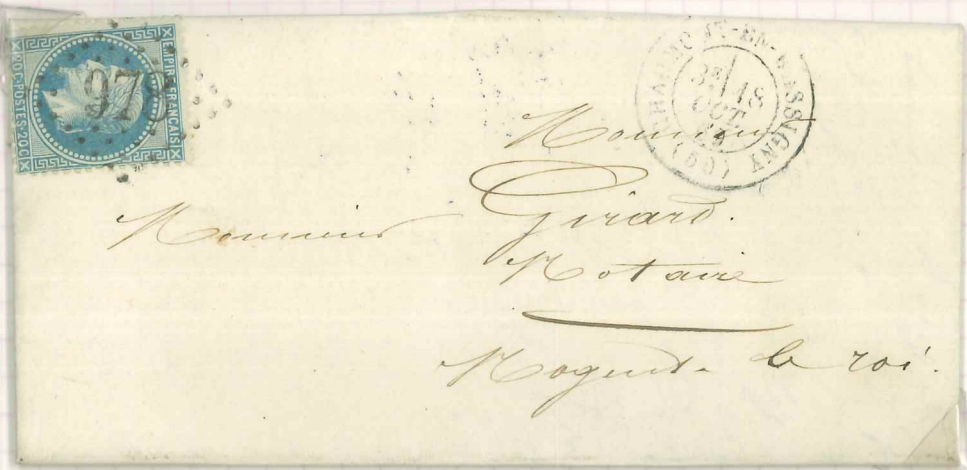 EMPIRE FRANÇAIS
20 C POSTES 20 C
978
CHAUMONT-EN-BASSIGNY
3E
18
OCT.
(50)
Monsieur
Monsieur
Girard.
Notaire
Nogent-le roi.